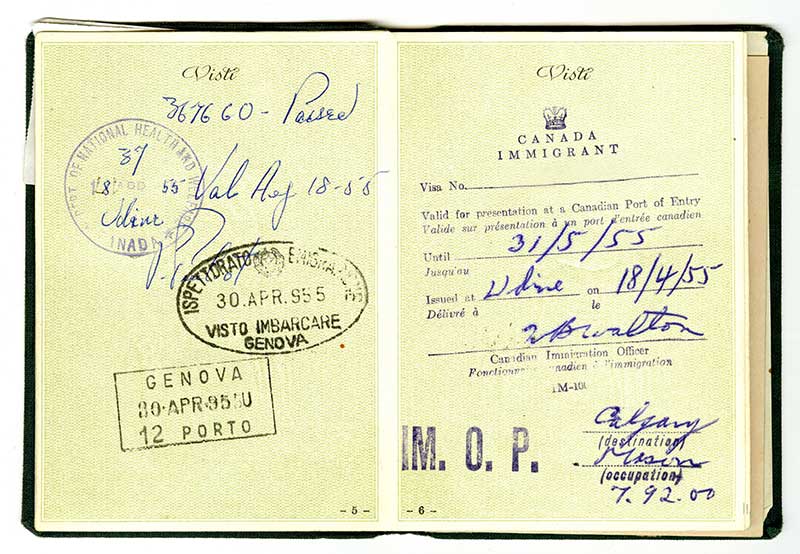 Visti
367660 - Passed
DEPT. OF NATIONAL HEALTH AND
37
18 55
Udine
Val Aug 18-55
ISPETTORATO EMIGRAZIONE
30.APR.955
VISTO IMBARCARE
GENOVA
GENOVA
30.APR.955U
12 PORTO
- 5 -
Visti
CANADA
IMMIGRANT
Visa No.
Valid for presentation at a Canadian Port of Entry
Valide sur présentation à un port d'entrée canadien
Until 31/5/55
Jusqu'au
Issued at Udine on 18/4/55
Délivré à le
Walton
Canadian Immigration Officer
Fonctionnaire canadien à l'immigration
IM-100
IM. O. P.
Calgary
(destination)
Mason
(occupation)
7.92.00
- 6 -